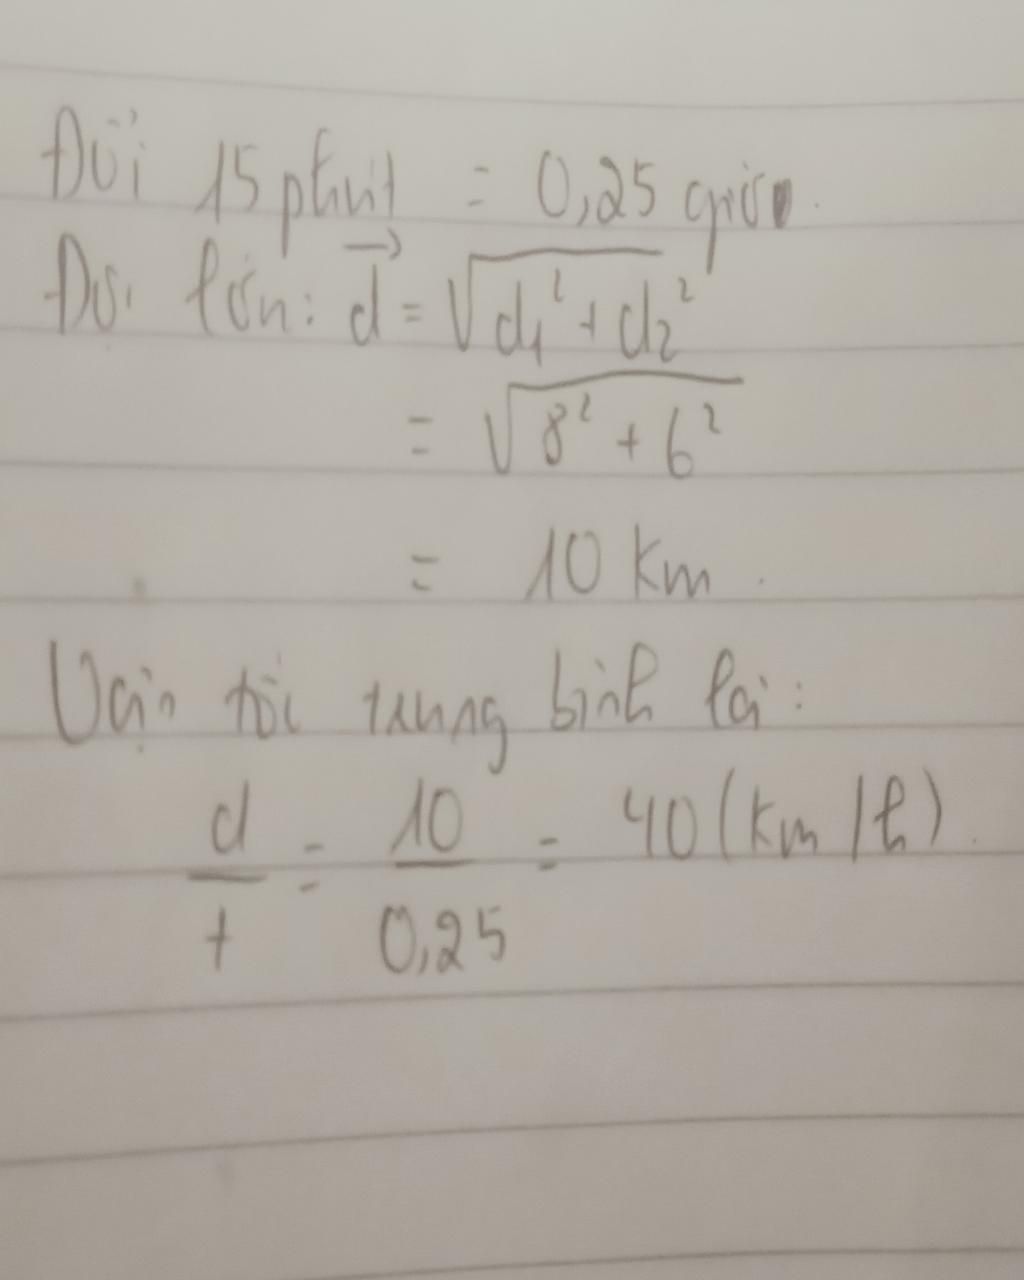 Đổi 15 phút = 0,25 giờ.
Độ lớn: \vec{d} = √(d₁² + d₂²)
= √(8² + 6²)
= 10 km.
Vận tốc trung bình là:
d/t = 10/0,25 = 40 (km/h).